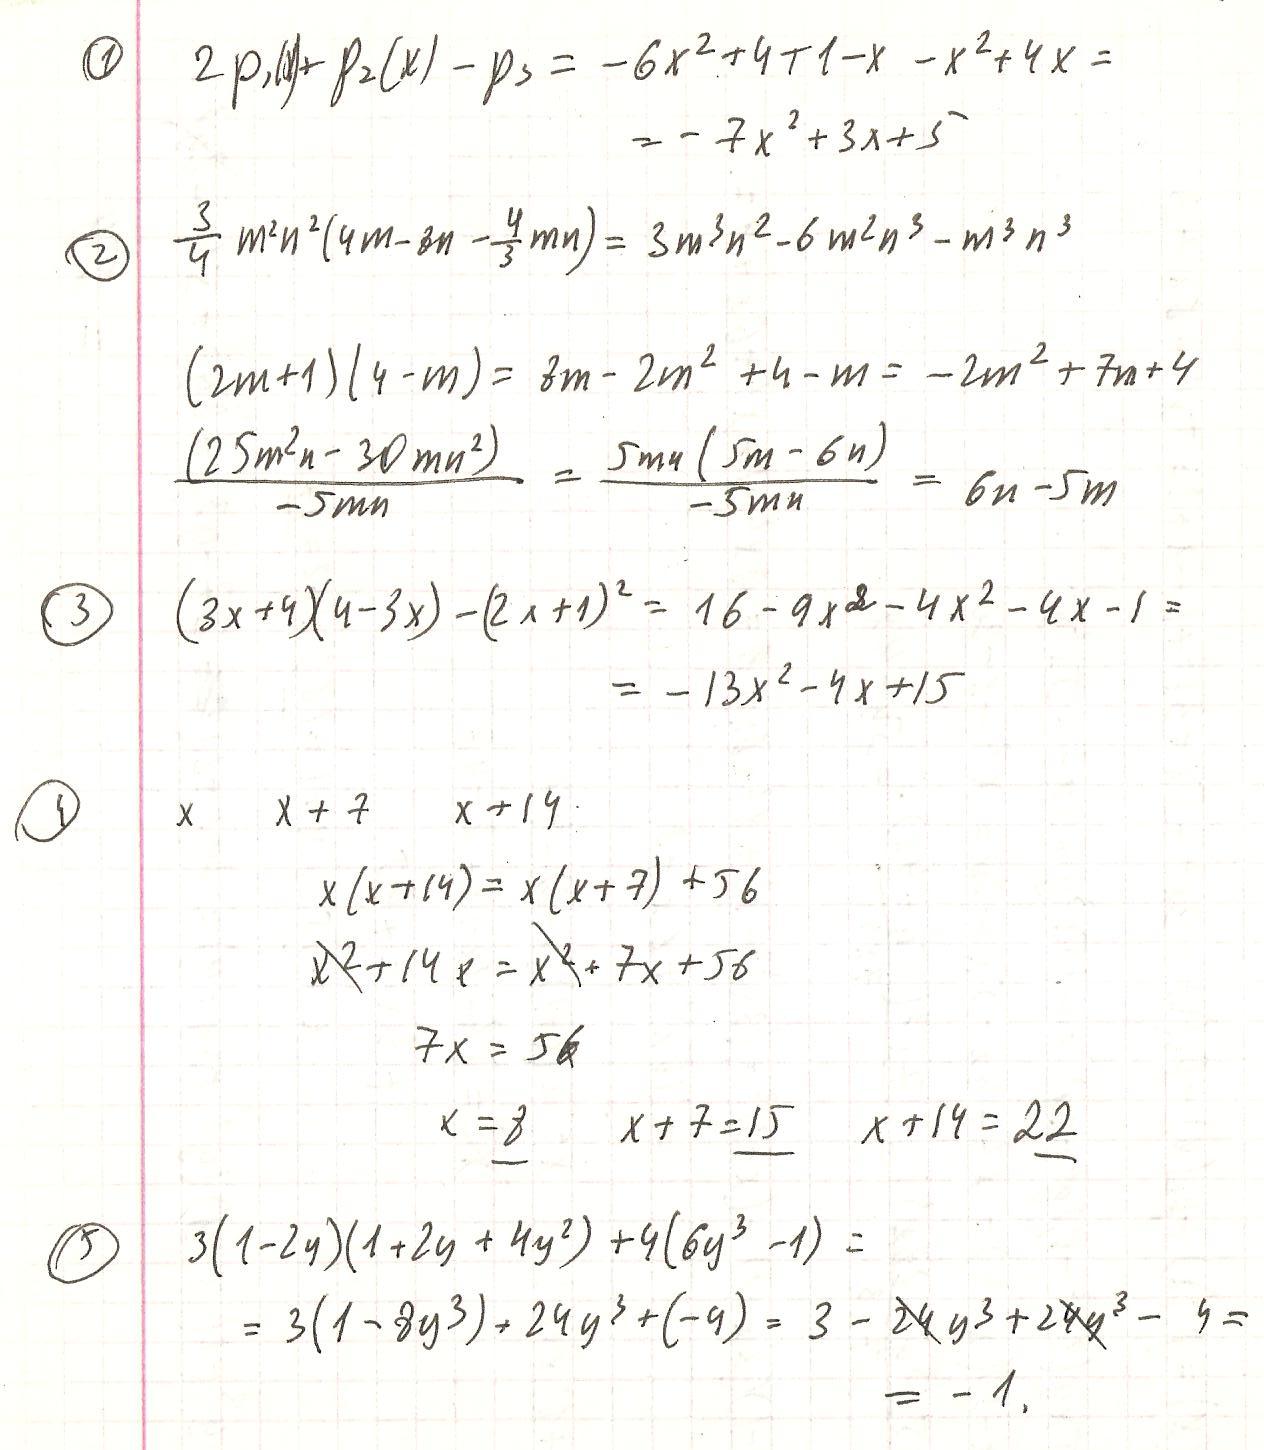 ① 2p₁(x) + p₂(x) - p₃ = -6x² + 4 + 1 - x - x² + 4x =
= -7x² + 3x + 5
② 3/4 m²n²(4m - 8n - 4/3 mn) = 3m³n² - 6m²n³ - m³n³
(2m+1)(4-m) = 8m - 2m² + 4 - m = -2m² + 7m + 4
(25m²n - 30mn²)/-5mn = 5mn(5m - 6n)/-5mn = 6n - 5m
③ (3x+4)(4-3x) - (2x+1)² = 16 - 9x² - 4x² - 4x - 1 =
= -13x² - 4x + 15
④ x x+7 x+14
x(x+14) = x(x+7) + 56
x² + 14x = x² + 7x + 56
7x = 56
x = 8 x+7 = 15 x+14 = 22
⑤ 3(1-2y)(1+2y+4y²) + 4(6y³-1) =
= 3(1-8y³) + 24y³ + (-4) = 3 - 24y³ + 24y³ - 4 =
= -1.